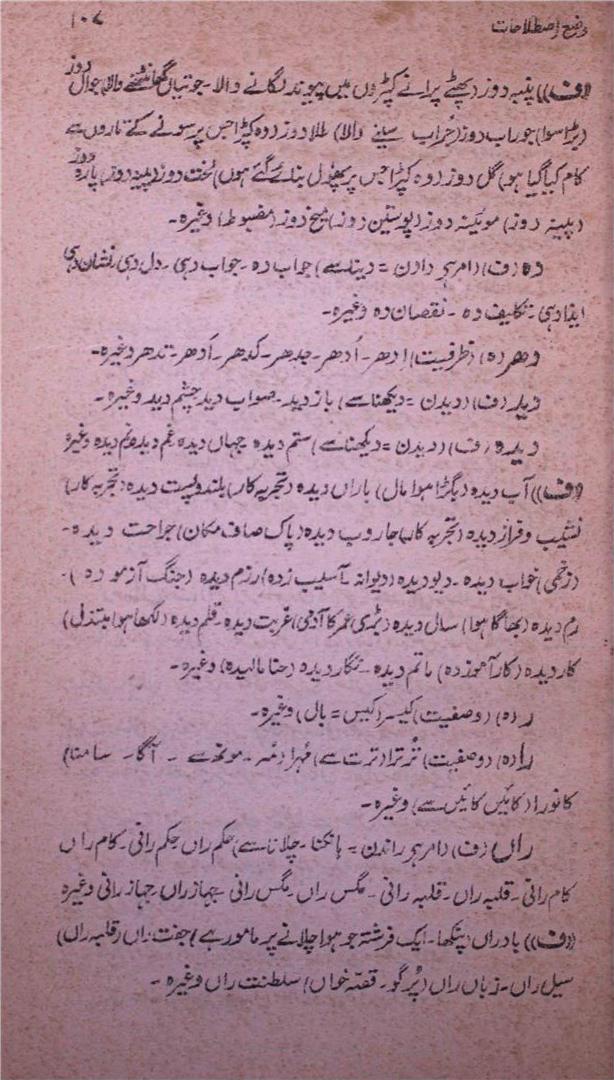 وضع اصطلاحات
۱۰۷
((ف)) پنبہ دوز (پھٹے پرانے کپڑوں میں پیوند لگانے والا۔ جوتیاں گانٹھنے والا) جوال دوز
(بڑا سوا) جوراب دوز (جُراب سینے والا) طلا دوز (وہ کپڑا جس پر سونے کے تاروں سے
کام کیا گیا ہو) گل دوز (وہ کپڑا جس پر پھول بنائے گئے ہوں) لخت دوز (پینہ دوز) پارہ دوز
(پینہ دوز) موئینہ دوز (پوستین دوز) میخ دوز (مضبوط) وغیرہ۔
دہ (ف) (امر ہو دادن = دینا سے) جواب دہ۔ جواب دہی۔ دل دہی۔ نشان دہی
ایذا دہی۔ تکلیف دہ ۔ نقصان دہ وغیرہ۔
دھر (ہ) (ظرفیت) اِدھر۔ اُدھر۔ جدھر۔ کدھر۔ اَدھر۔ تدھر وغیرہ۔
دید (ف) (دیدن = دیکھنا سے) باز دید۔ صواب دید چشم دید وغیرہ ۔
دیدہ (ف) (دیدن = دیکھنا سے) ستم دیدہ جہاں دیدہ غم دیدہ نم دیدہ وغیرہ
((ف)) آب دیدہ (بگڑا ہوا مال) باراں دیدہ (تجربہ کار) بلند و پست دیدہ (تجربہ کار)
نشیب و فراز دیدہ (تجربہ کار) جاروب دیدہ (پاک صاف مکان) جراحت دیدہ۔
(زخمی) خواب دیدہ ۔ دیو دیدہ (دیوانہ ۔ آسیب زدہ) رزم دیدہ (جنگ آزمودہ)۔
رم دیدہ (بھاگا ہوا) سال دیدہ (بڑی عمر کا آدمی) غربت دیدہ۔ قلم دیدہ (لکھا ہوا مبتذل)
کار دیدہ (کار آموزدہ) ماتم دیدہ ۔ نگار دیدہ (حنا مالیدہ) وغیرہ ۔
ر (ہ) (وصفیت) کیسر (کیس = بال) وغیرہ۔
را (ہ) (وصفیت) تُرترا (ترت سے) مُہرا (مُہ ۔ مونھ سے ۔ آگا ۔ سامنا)
کانورا (کائیں کائیں سے) وغیرہ ۔
راں (ف) (امر ہو راندن = ہانکنا ۔ چلانا سے) حکم راں حکم رانی۔ کام راں
کام رانی۔ قلبہ راں۔ قلبہ رانی ۔ مگس راں۔ مگس رانی ۔ جہاز راں۔ جہاز رانی وغیرہ
((ف)) باد راں (پنکھا۔ ایک فرشتہ جو ہوا چلانے پر مامور ہے) جفت راں (قلبہ راں)
سیل راں۔ زباں راں (پُر گو۔ قصّہ خواں) سلطنت راں وغیرہ ۔